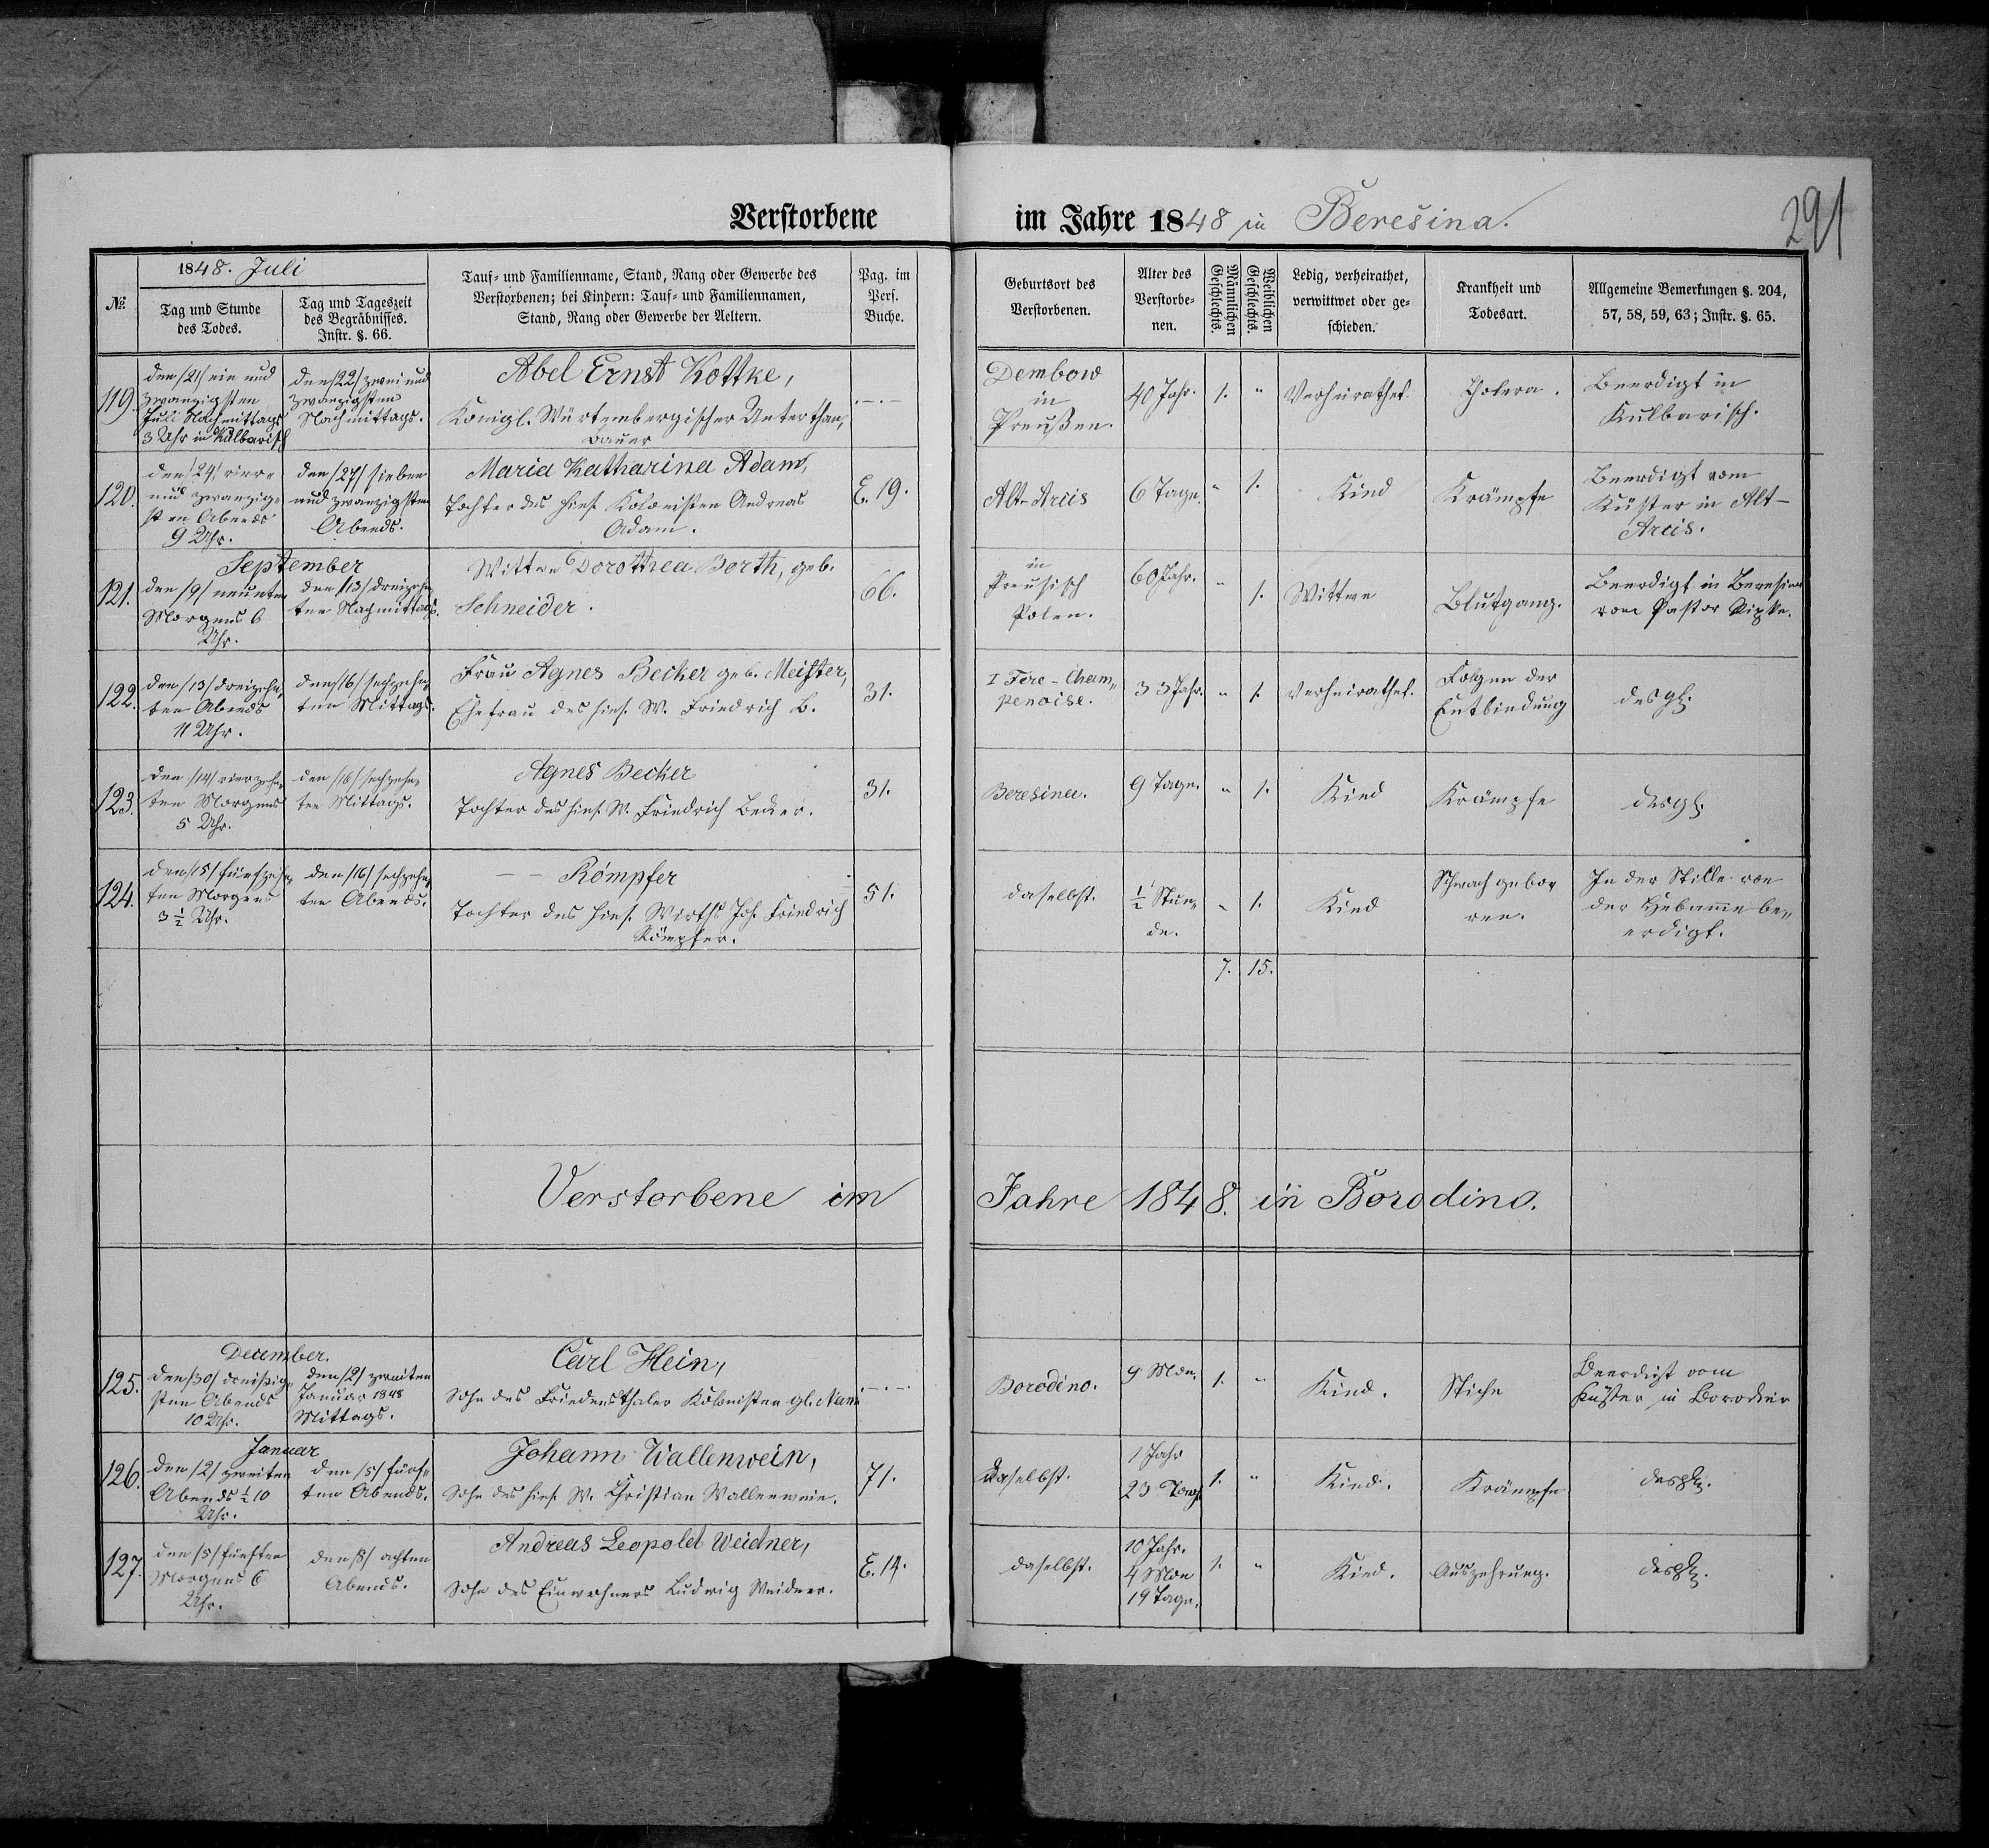 Verstorbene im Jahre 1848 in Beresina.
291
№
1848. Juli
Tag und Stunde
des Todes.
Tag und Tageszeit
des Begräbnisses.
Instr. §. 66.
Tauf- und Familienname, Stand, Rang oder Gewerbe des
Verstorbenen; bei Kindern: Tauf- und Familiennamen,
Stand, Rang oder Gewerbe der Aeltern.
Pag. im
Pers.
Buche.
Geburtsort des
Verstorbenen.
Alter des
Verstorbe-
nen.
Männlichen
Geschlechts.
Weiblichen
Geschlechts.
Ledig, verheirathet,
verwittwet oder ge-
schieden.
Krankheit und
Todesart.
Allgemeine Bemerkungen §. 204,
57, 58, 59, 63; Instr. §. 65.
119.
den /21/ ein und
zwanzigsten
Juli Nachmittags
3 Uhr in Kulbarisch
den /22/ zwei und
zwanzigsten
Nachmittags.
Abel Ernst Kottke,
Königl. Würtembergischer Unterthan,
Bauer
Dembow
in
Preußen.
40 Jahr.
1.
"
Verheirathet.
Cholera.
Beerdigt in
Kulbarisch.
120.
den /24/ vier-
und zwanzig-
sten Abends
9 Uhr.
den /27/ sieben
und zwanzigsten
Abends.
Maria Katharina Adam,
Tochter des hies. Kolonisten Andreas
Adam.
E. 19.
Alt-Arcis
6 Tage.
"
1.
Kind
Krämpfe
Beerdigt vom
Küster in Alt-
Arcis.
September
121.
den /9/ neunten
Morgens 6
Uhr.
den /13/ dreizehn
ten Nachmittags.
Wittwe Dorothea Borth, geb.
Schneider.
66.
in
Preusisch
Polen.
60 Jahr.
"
1.
Wittwe
Blutgang.
Beerdigt in Beresina
vom Pastor Pipke.
122.
den /13/ dreizehn
ten Abends
11 Uhr.
den /16/ sechzehn
ten Mittags.
Frau Agnes Becker geb. Meister,
Ehefrau des hies. W. Friedrich B.
31.
I Fere-Cham„
penoise.
33 Jahr.
"
1.
verheirathet.
Folgen der
Entbindung
desgl.
123.
den /14/ vierzehn
ten Morgens
5 Uhr.
den /16/ sechzehn
ten Mittags.
Agnes Becker
Tochter des hies. W. Friedrich Becker.
31.
Beresina.
9 Tage.
"
1.
Kind
Krämpfe
desgl.
124.
den /15/ fünfzehn„
ten Morgens
3 ½ Uhr.
den /16/ sechzehn„
ten Abends.
— — Römpfer
Tochter des hies. Wirths Joh. Friedrich
Römpfer.
51.
daselbst.
½ Stun„
de.
"
1.
Kind
Schwach gebor
ren.
In der Stille von
der Hebamme be„
erdigt.
7. 15.
Verstorbene im Jahre 1848. in Borodino.
December.
125.
den /30/ dreißig„
sten Abends
10 Uhr.
den /2/ zweiten
Januar 1848
Mittags.
Carl Hein,
Sohn des Friedensthaler Kolonisten gl. Nam.
Borodino.
9 Mon.
1.
"
Kind.
Stiche
Beerdigt vom
Küster in Borodino
Januar
126.
den /2/ zweiten
Abends ½ 10
Uhr.
den /5/ fünf„
ten Abends.
Johann Wallenwein,
Sohn des hies. W. Christian Wallenwein.
71.
Daselbst.
1 Jahr
23 Tage
1.
"
Kind.
Krämpfe
desgl.
127.
den /5/ fünften
Morgens 6
Uhr.
den /8/ achten
Abends.
Andreas Leopold Weidner,
Sohn des Einwohners Ludwig Weidner.
E. 14.
daselbst.
10 Jahr.
4 Mon
19 Tage.
1.
"
Kind.
Auszehrung.
desgl.